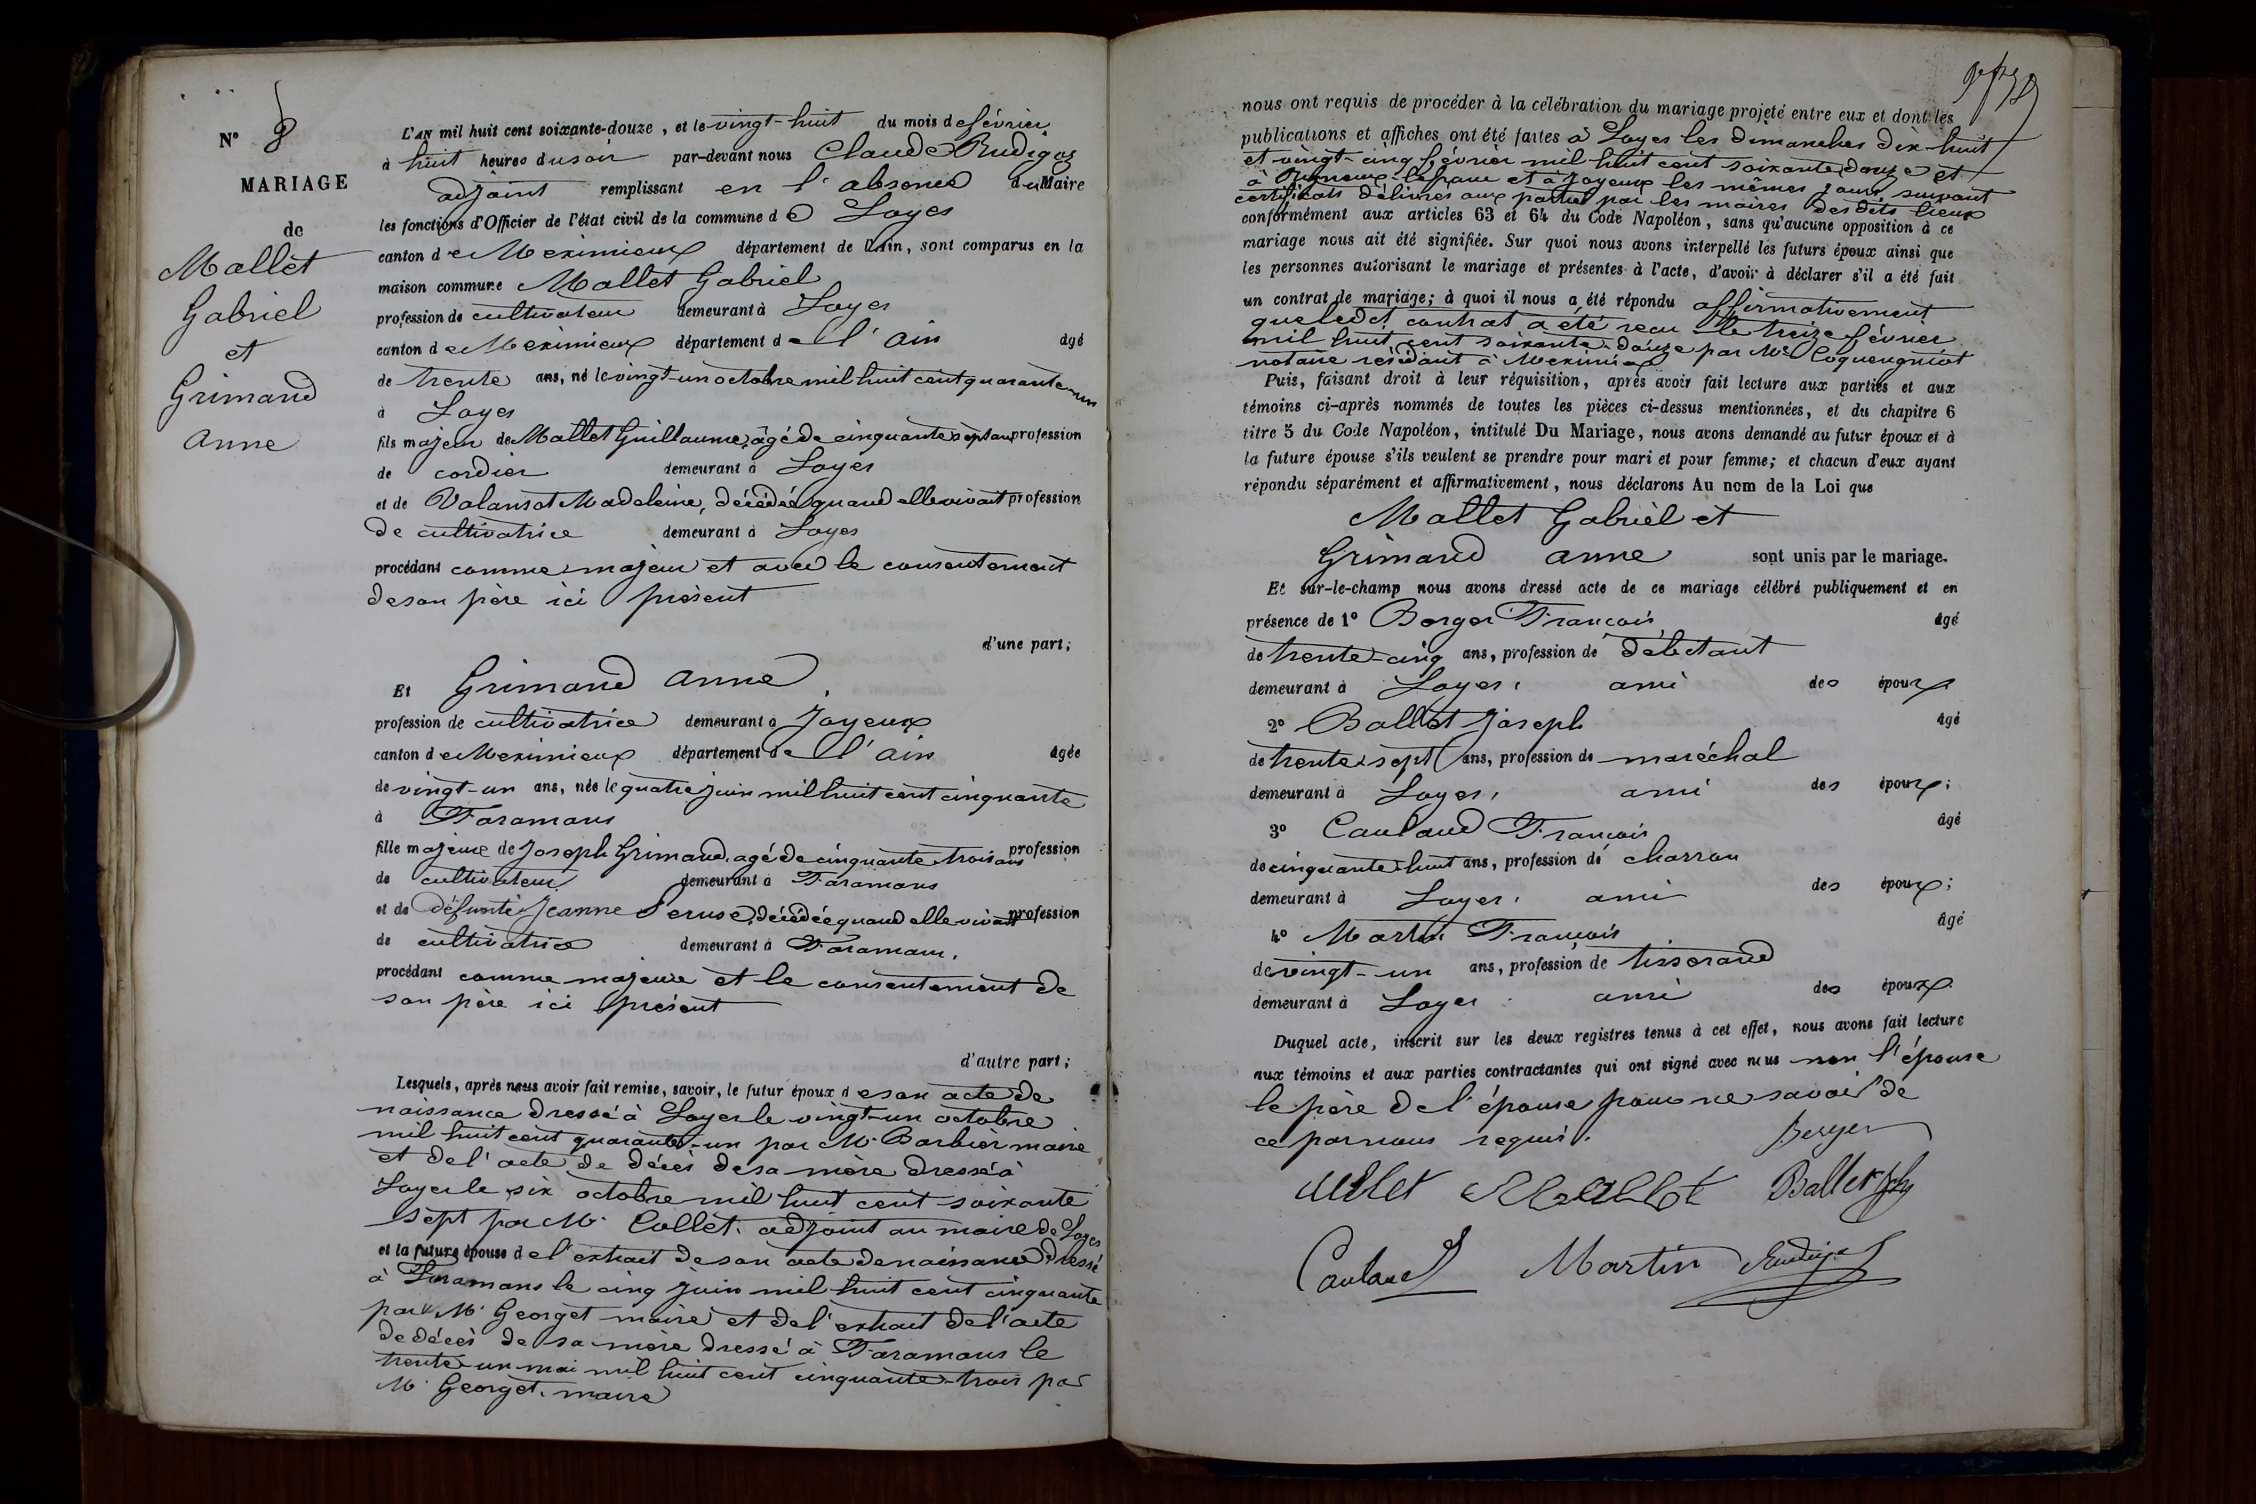 N° 8
MARIAGE
de
Mallet
Gabriel
et
Grimand
Anne
L'AN mil huit cent soixante-douze, et le vingt-huit du mois de février
à huit heures du soir par-devant nous Claude Rudigoz
adjoint remplissant en l'absence du Maire
les fonctions d'Officier de l'état civil de la commune de Loyes
canton de Meximieux département de l'Ain, sont comparus en la
maison commune Mallet Gabriel
profession de cultivateur demeurant à Loyes
canton de Meximieux département de l'Ain âgé
de trente ans, né le vingt-un octobre mil huit cent quarante un
à Loyes
fils majeur de Mallet Guillaume, âgé de cinquante sept ans profession
de cordier demeurant à Loyes
et de Valansot Madeleine, décédée quand elle vivait profession
de cultivatrice demeurant à Loyes
procédant comme majeur et avec le consentement
de son père ici présent
d'une part;
Et Grimand Anne,
profession de cultivatrice demeurant à Joyeux
canton de Meximieux département de l'Ain âgée
de vingt-un ans, née le quatre juin mil huit cent cinquante
à Faramans
fille majeure de Joseph Grimand, agé de cinquante trois ans profession
de cultivateur demeurant à Faramans
et de défunte Jeanne décédée quand elle vivait profession
de cultivatrice demeurant à Faramans,
procédant comme majeure et le consentement de
son père ici présent
d'autre part;
Lesquels, après nous avoir fait remise, savoir, le futur époux de son acte de
naissance dressé à Loyes le vingt-un octobre
mil huit cent quarante-un par Mr Barbier maire
et de l'acte de décès de sa mère dressé à
Loyes le six octobre mil huit cent soixante
sept par Mr Collet, adjoint au maire de Loyes
et la future épouse de l'extrait de son acte de naissance dressé
à Faramans le cinq juin mil huit cent cinquante
par Mr Georget maire et de l'extrait de l'acte
de décès de sa mère dressé à Faramans le
trente-un mai mil huit cent cinquante-trois par
Mr Georget, maire
nous ont requis de procéder à la célébration du mariage projeté entre eux et dont les
publications et affiches ont été faites à Loyes les dimanches dix-huit
et vingt-cinq février mil huit cent soixante douze et
à et à Joyeux les mêmes jours, suivant
certificats délivrés aux parties par les maires desdits lieux
conformément aux articles 63 et 64 du Code Napoléon, sans qu'aucune opposition à ce
mariage nous ait été signifiée. Sur quoi nous avons interpellé les futurs époux ainsi que
les personnes autorisant le mariage et présentes à l'acte, d'avoir à déclarer s'il a été fait
un contrat de mariage; à quoi il nous a été répondu affirmativement
que ledt contrat a été reçu le treize février
mil huit cent soixante-douze par Me Coquengniot
notaire résidant à Meximieux
Puis, faisant droit à leur réquisition, après avoir fait lecture aux parties et aux
témoins ci-après nommés de toutes les pièces ci-dessus mentionnées, et du chapitre 6
titre 5 du Code Napoléon, intitulé Du Mariage, nous avons demandé au futur époux et à
la future épouse s'ils veulent se prendre pour mari et pour femme; et chacun d'eux ayant
répondu séparément et affirmativement, nous déclarons Au nom de la Loi que
Mallet Gabriel et
Grimand Anne sont unis par le mariage.
Et sur-le-champ nous avons dressé acte de ce mariage célébré publiquement et en
présence de 1° Berger François âgé
de trente-cinq ans, profession de débitant
demeurant à Loyes, ami des époux
2° Ballet Joseph âgé
de trente-sept ans, profession de maréchal
demeurant à Loyes, ami des époux;
3° Cauland François âgé
de cinquante-huit ans, profession de charron
demeurant à Loyes, ami des époux;
4° Martin François âgé
de vingt-un ans, profession de tisserand
demeurant à Loyes ami des époux
Duquel acte, inscrit sur les deux registres tenus à cet effet, nous avons fait lecture
aux témoins et aux parties contractantes qui ont signé avec nous non l'épouse
le père de l'épouse pour ne savoir de
ce par nous requis.
Berger
Mallet Ballet Jph
Cauland Martin Rudigoz